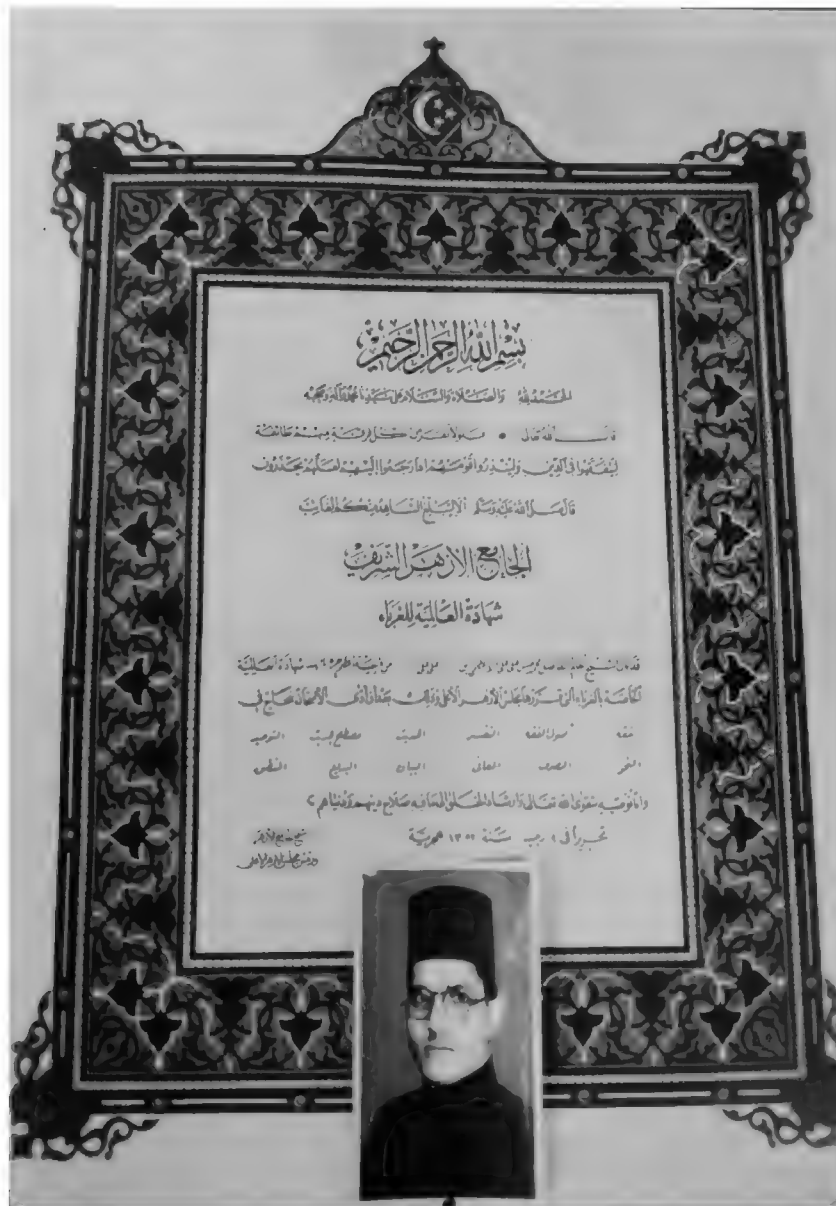 بسم الله الرحمن الرحيم
الحمد لله والصلاة والسلام على سيدنا محمد وآله وصحبه
قال الله تعالى • فلولا نفر من كل فرقة منهم طائفة
ليتفقهوا في الدين ولينذروا قومهم إذا رجعوا إليهم لعلهم يحذرون
قال صلى الله عليه وسلم ألا ليبلغ الشاهد منكم الغائب
الجامع الأزهر الشريف
شهادة العالمية للغرباء
الشيخ من شهادة العالمية
الخاصة بالغرباء التي قررها مجلس الأزهر الأعلى وذلك بعد أن أدى الامتحان بنجاح في
فقه أصول الفقه التفسير الحديث مصطلح الحديث التوحيد
النحو الصرف المعاني البيان البديع المنطق
وإنا نوصيه بتقوى الله تعالى وإرشاد الخلق إلى ما فيه صلاح دينهم ودنياهم
تحريرا في رجب سنة هجرية
شيخ الجامع الأزهر
ورئيس مجلس الأزهر الأعلى